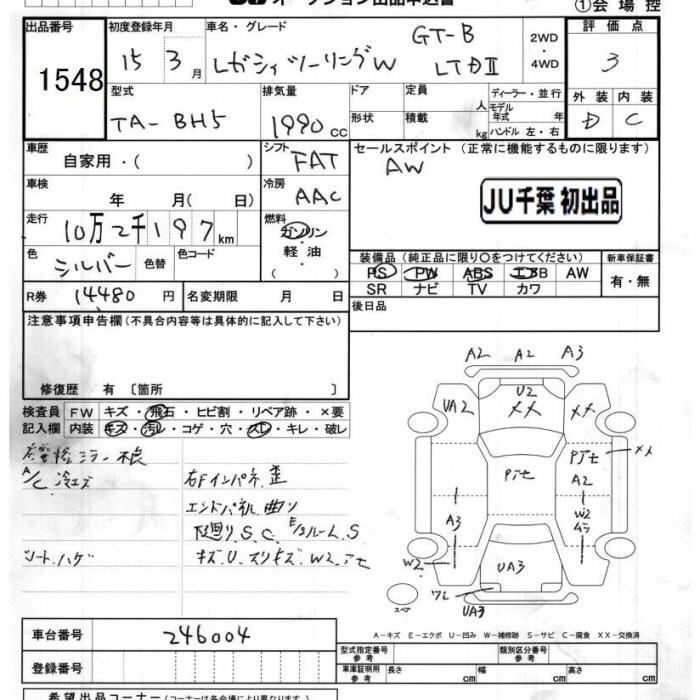 オークション出品申込書
①会場控
出品番号 初度登録年月 車名・グレード 2WD・4WD 評価点
1548 15 3月 レガシィツーリングW GT-B LTDII 3
型式 排気量 ドア 定員 人 ディーラー・並行 外装 内装
TA-BH5 1990cc 形状 積載 kg モデル年式 年式 ハンドル 左・右 D C
車歴 自家用・( ) シフト FAT セールスポイント (正常に機能するものに限ります)
AW
車検 年 月( 日) 冷房 AAC
JU千葉 初出品
走行 10万2千197km 燃料 ガソリン・軽油( )
色 シルバー 色替 色コード
装備品 (純正品に限り○をつけてください) 新車保証書
PS PW ABS エアB AW 有・無
SR ナビ TV カワ
R券 14480円 名変期限 月 日
後日品
注意事項申告欄(不具合内容等は具体的に記入して下さい)
修復歴 有〔箇所 〕
A2 A2 A3
検査員 FW キズ・飛石・ヒビ割・リペア跡・×要
記入欄 内装 キズ・汚レ・コゲ・穴・スレ・キレ・破レ
UA2 U2 XX XX
A/C冷エズ 右Fインパネ歪
エンドパネル曲リ
下廻リS.C
シートハゲ キズ.U.スリキズ.W2
XX
A2
A3 W2
W2 UA3
ワレ
スペア UA3
A-キズ E-エクボ U-凹み W-補修跡 S-サビ C-腐食 XX-交換済
車台番号 246004
型式指定番号 参考 類別区分番号 参考
登録番号 車庫証明用 参考 長さ cm 幅 cm 高さ cm
希望出品コーナー (コーナーは各会場により異なります)